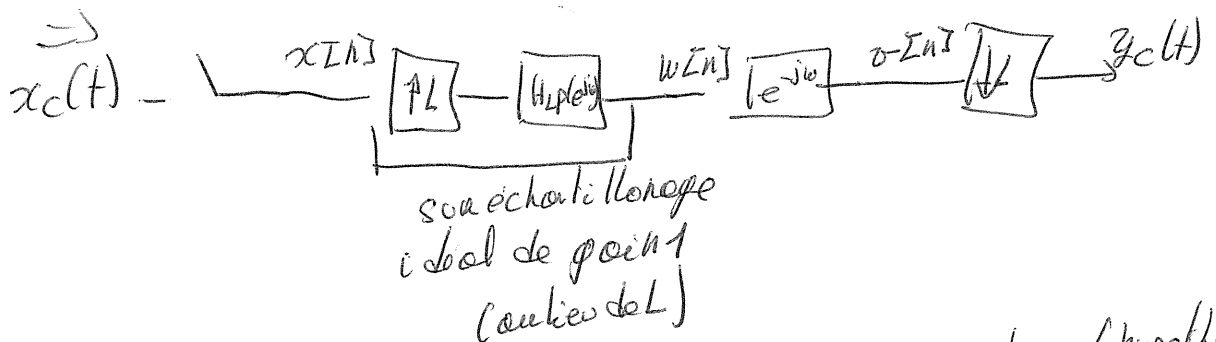 ⇒
x_c(t) x[n] ↑L H_LP(e^jω) w[n] e^-jω v[n] ↓L y_c(t)
suréchantillonage
idéal de gain 1
(au lieu de L)